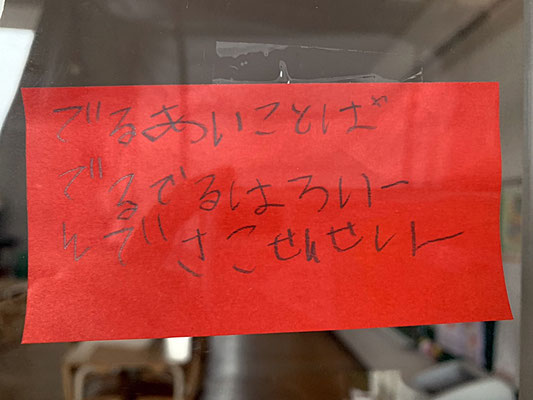 でるあいことば
でるでるはろいー
んでさこせんせいー